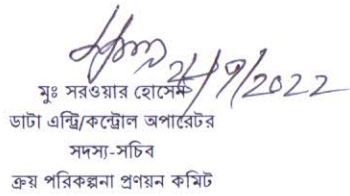 2/9/2022
মুঃ সরওয়ার হোসেন
ডাটা এন্ট্রি/কন্ট্রোল অপারেটর
সদস্য-সচিব
ক্রয় পরিকল্পনা প্রণয়ন কমিট